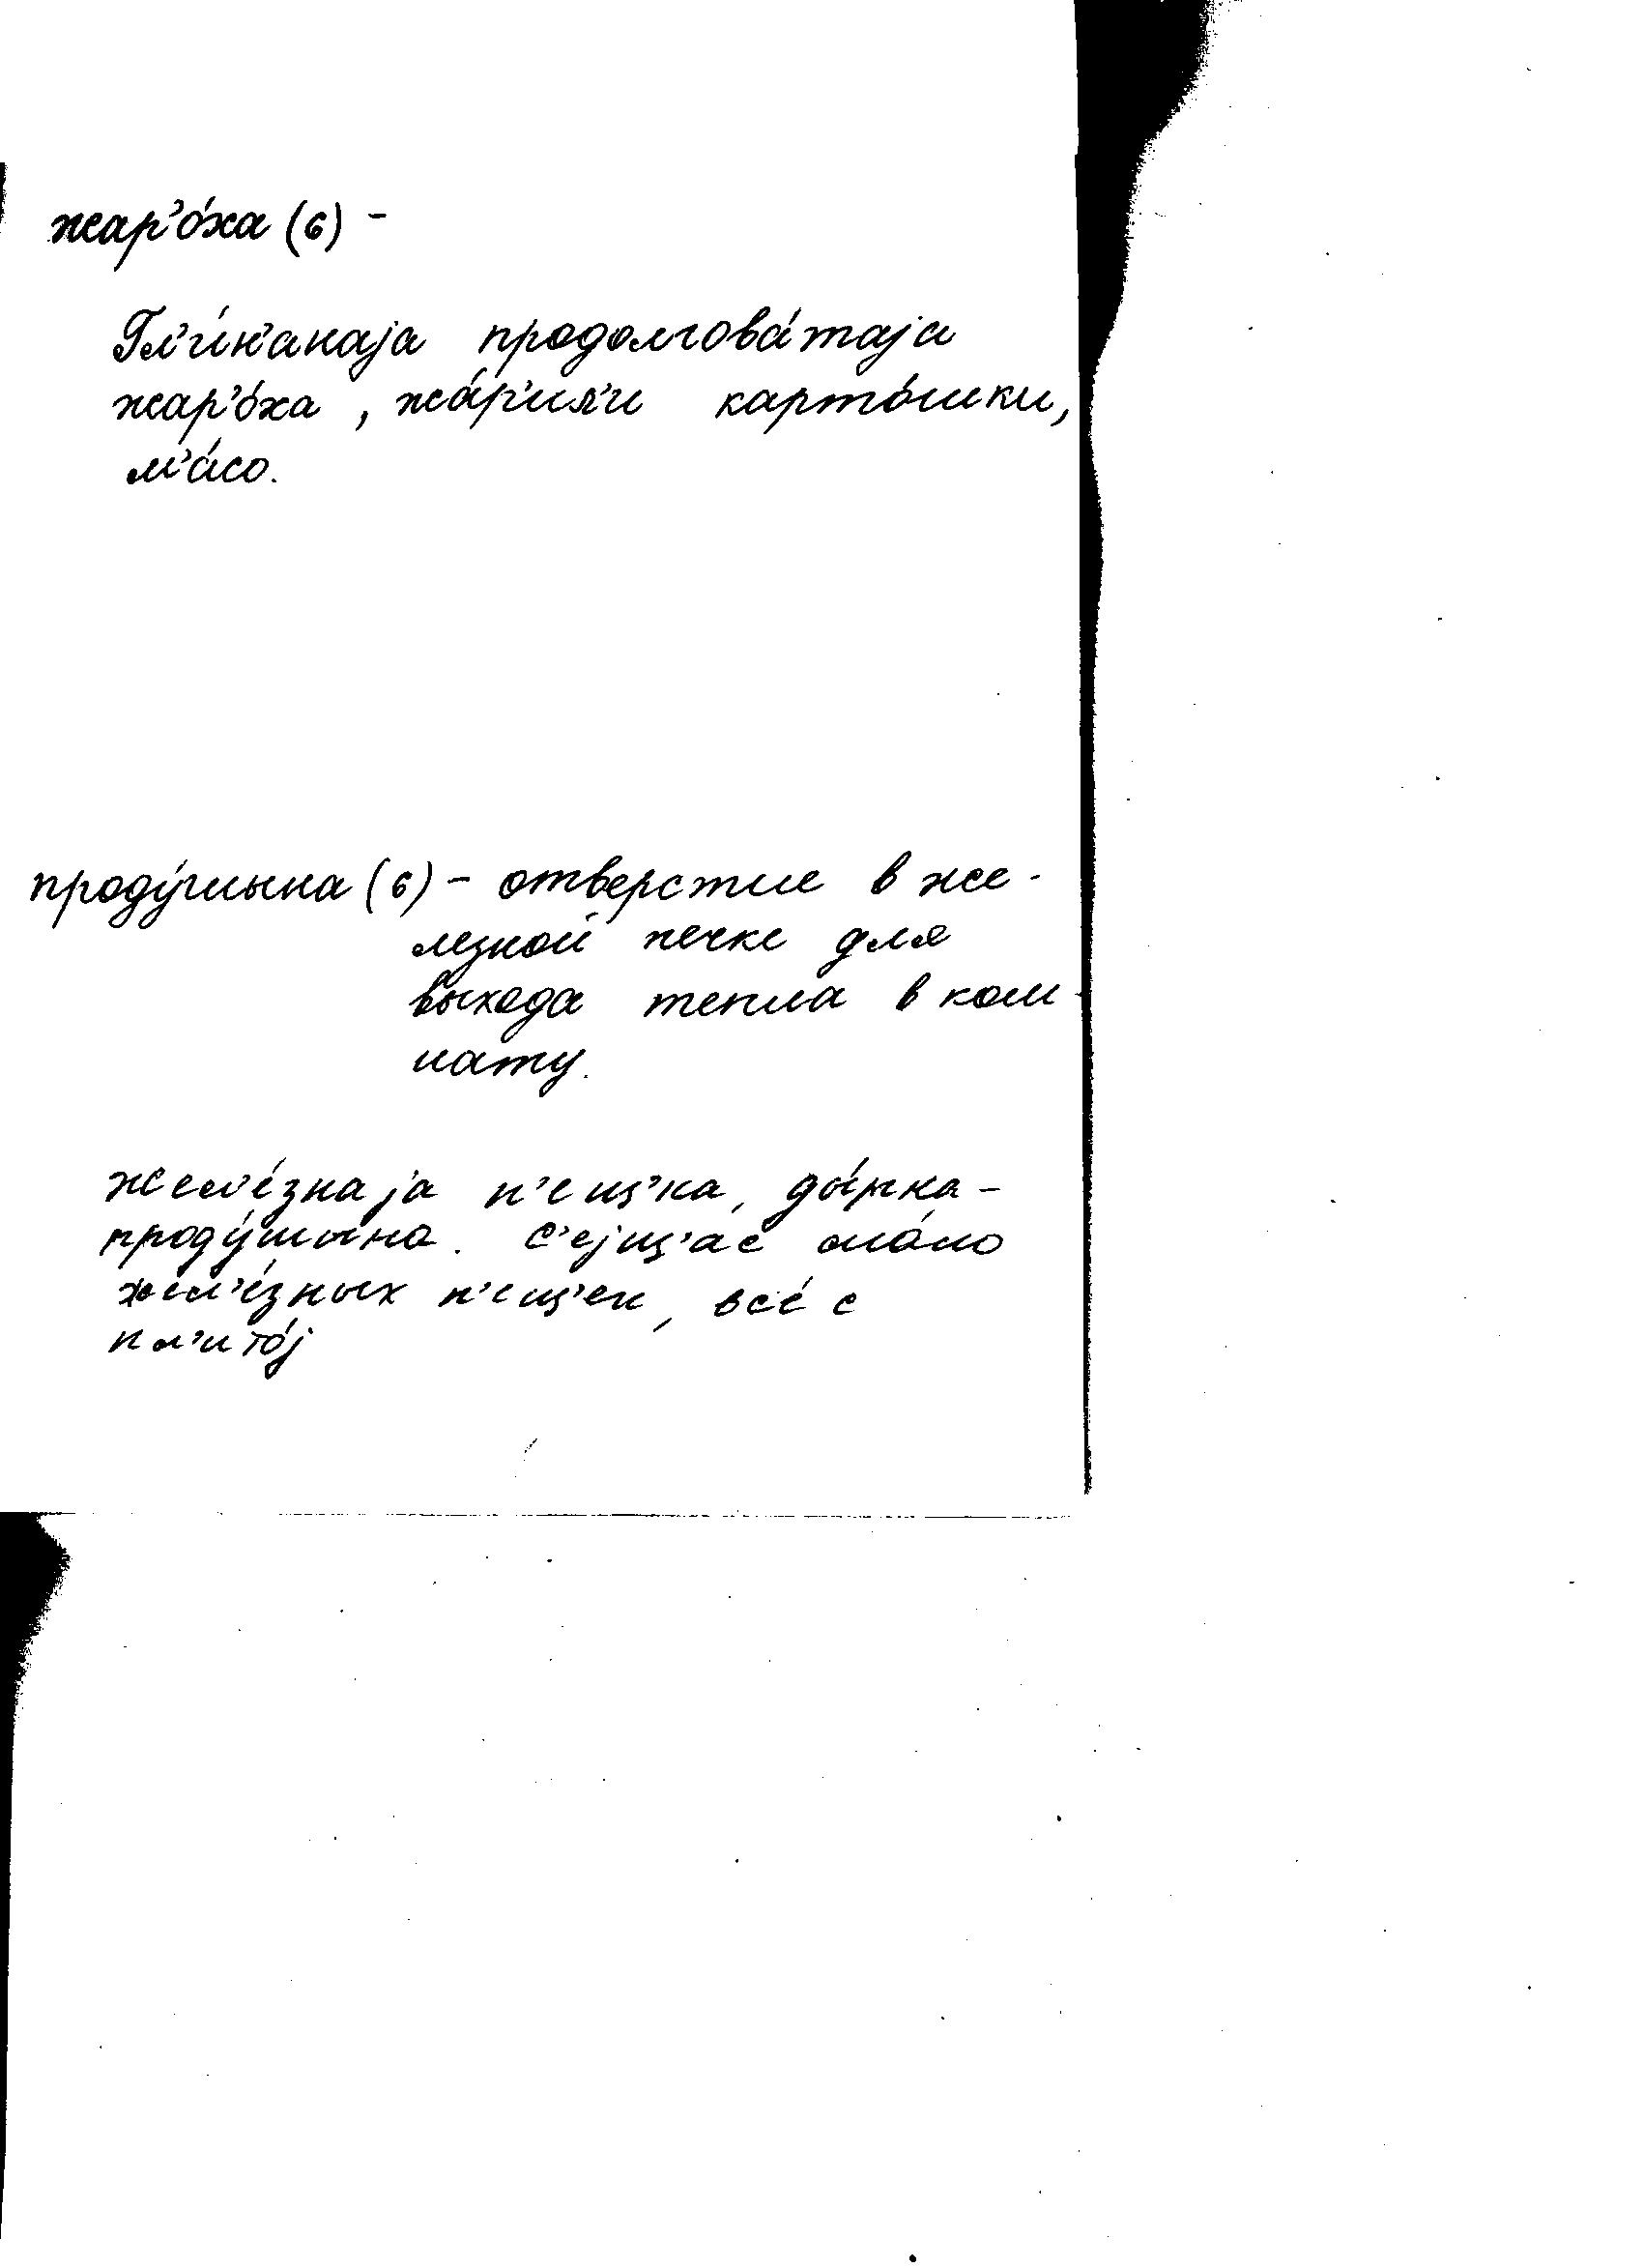 жар’о́ха (6) –
Гл’и́н’анаjа продолгова́таjа
жар’о́ха, жа́р’ил’и карто́шки,
м’а́со.
проду́шына (6) – отверстие в же-
лезной печке для
выхода тепла в ком-
нату.
жел’е́знаjа п’е щ’ка, ды́рка –
проду́шына. с’еjщ’ас ма́ло
жел’е́зных п’е щ’ек, все́ с
пл’ито́j